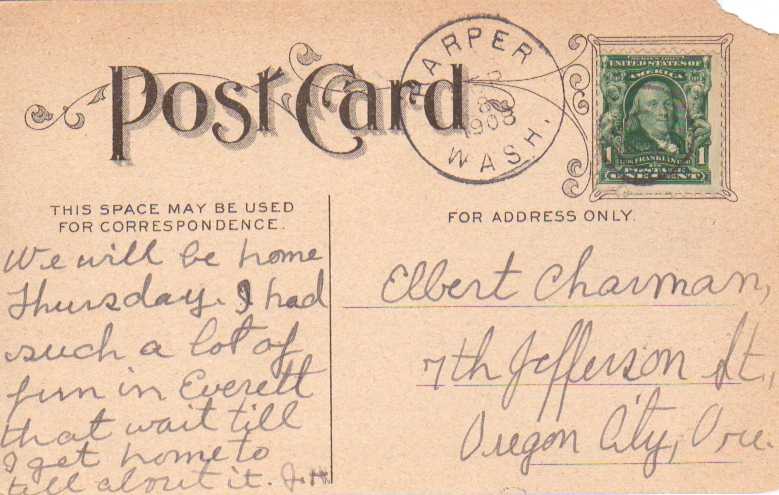 Post Card
HARPER
1908
WASH.
SERIES 1902
UNITED STATES OF
AMERICA
1 FRANKLIN 1
POSTAGE
ONE CENT
THIS SPACE MAY BE USED
FOR CORRESPONDENCE.
FOR ADDRESS ONLY.
We will be home
Thursday. I had
such a lot of
fun in Everett
that wait till
I get home to
tell about it. J.H
Elbert Charman,
7th Jefferson St.,
Oregon City, Ore.